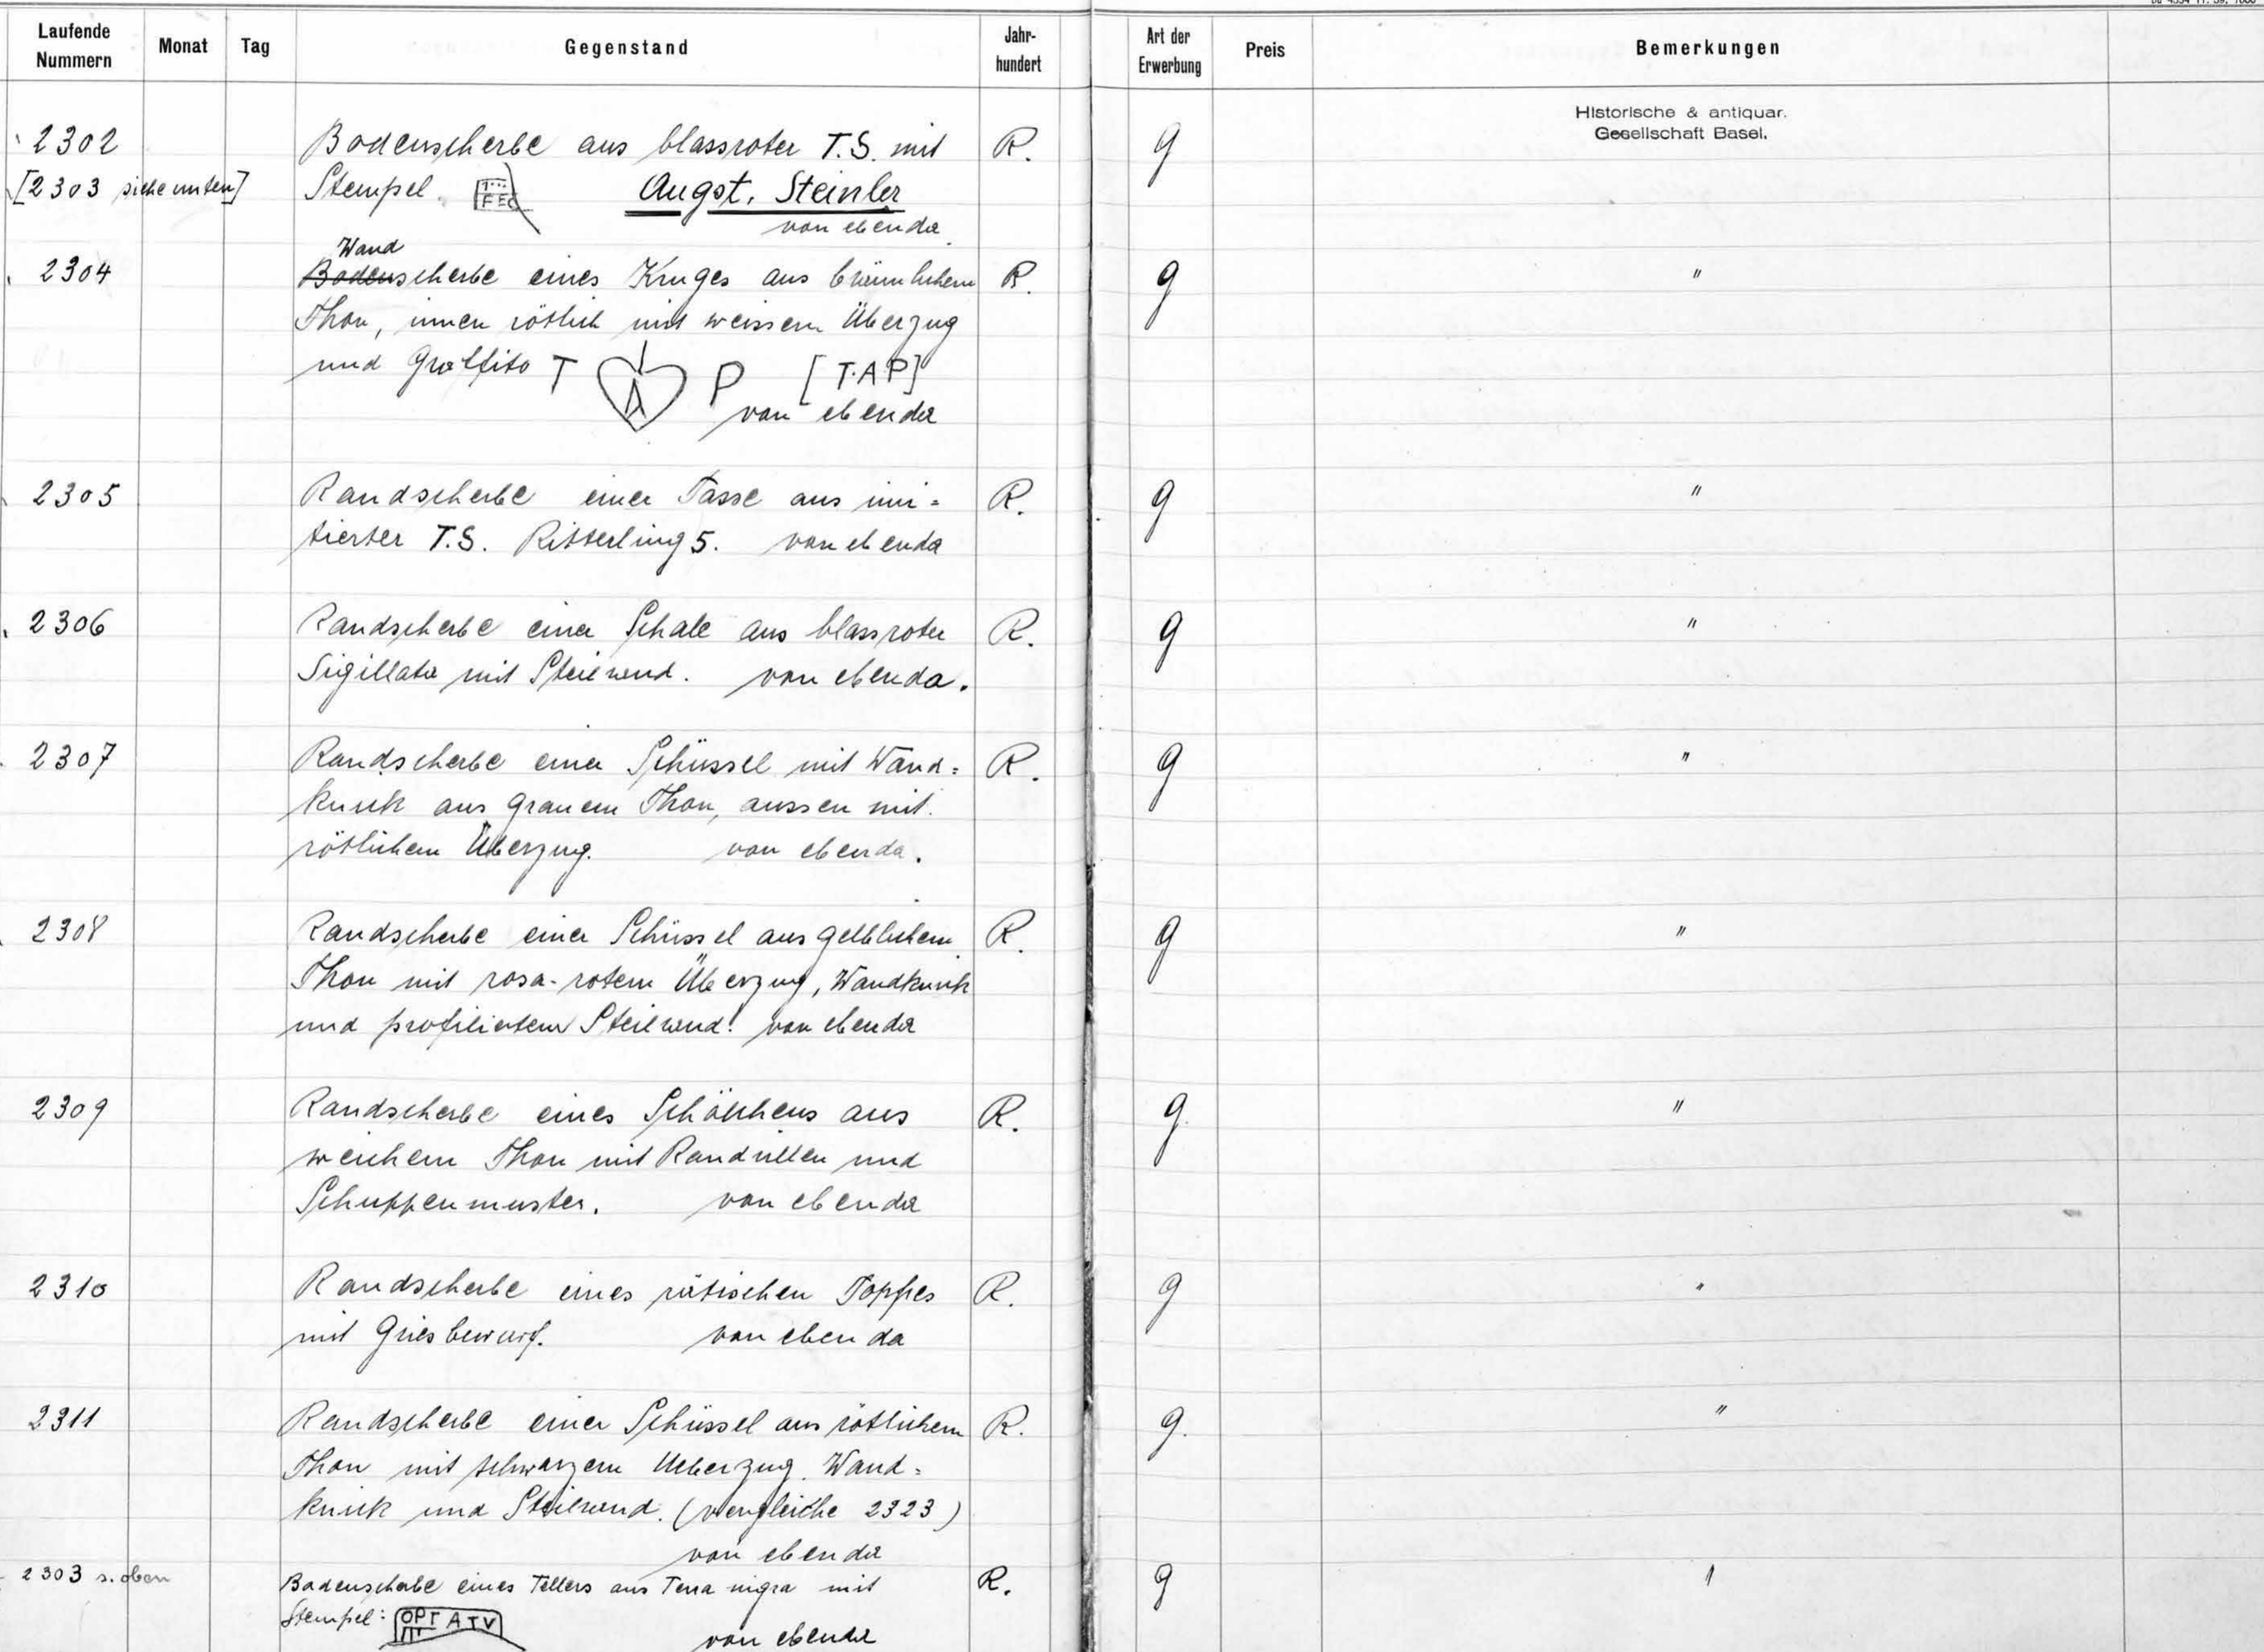 Laufende Nummern Monat Tag Gegenstand Jahr-hundert Art der Erwerbung Preis Bemerkungen
Historische & antiquar.
Gesellschaft Basel.
2302 Bodenscherbe aus blassroter T.S. mit R. g
[2303 siehe unten] Stempel FEC Augst, Steinler
von ebenda
Wand
2304 Bodenscherbe eines Kruges aus bräunlichem R. g "
Thon, innen rötlich mit weissem Überzug
und Graffito T A P [T.A.P]
von ebenda
2305 Randscherbe einer Tasse aus imi= R. g "
tierter T.S. Ritterling 5. von ebenda
2306 Randscherbe einer Schale aus blassroter R. g "
Sigillata mit Steilwand. von ebenda.
2307 Randscherbe einer Schüssel mit Wand= R. g "
knick aus grauem Thon, aussen mit
rötlichem Überzug. von ebenda.
2308 Randscherbe einer Schüssel aus gelblichem R. g "
Thon mit rosa-rotem Überzug, Wandknick
und profiliertem Steilwand. von ebenda
2309 Randscherbe eines Schälchens aus R. g. "
weichem Thon mit Randrillen und
Schuppenmuster. von ebenda
2310 Randscherbe eines rätischen Topfes R. g "
mit Griesbewurf. von ebenda
2311 Randscherbe einer Schüssel aus rötlichem R. g. "
Thon mit schwarzem Ueberzug. Wand=
knick und Steilwand. (vergleiche 2323)
von ebenda
2303 s. oben Bodenscherbe eines Tellers aus Terra nigra mit R. g
Stempel: OPTATV
von ebenda